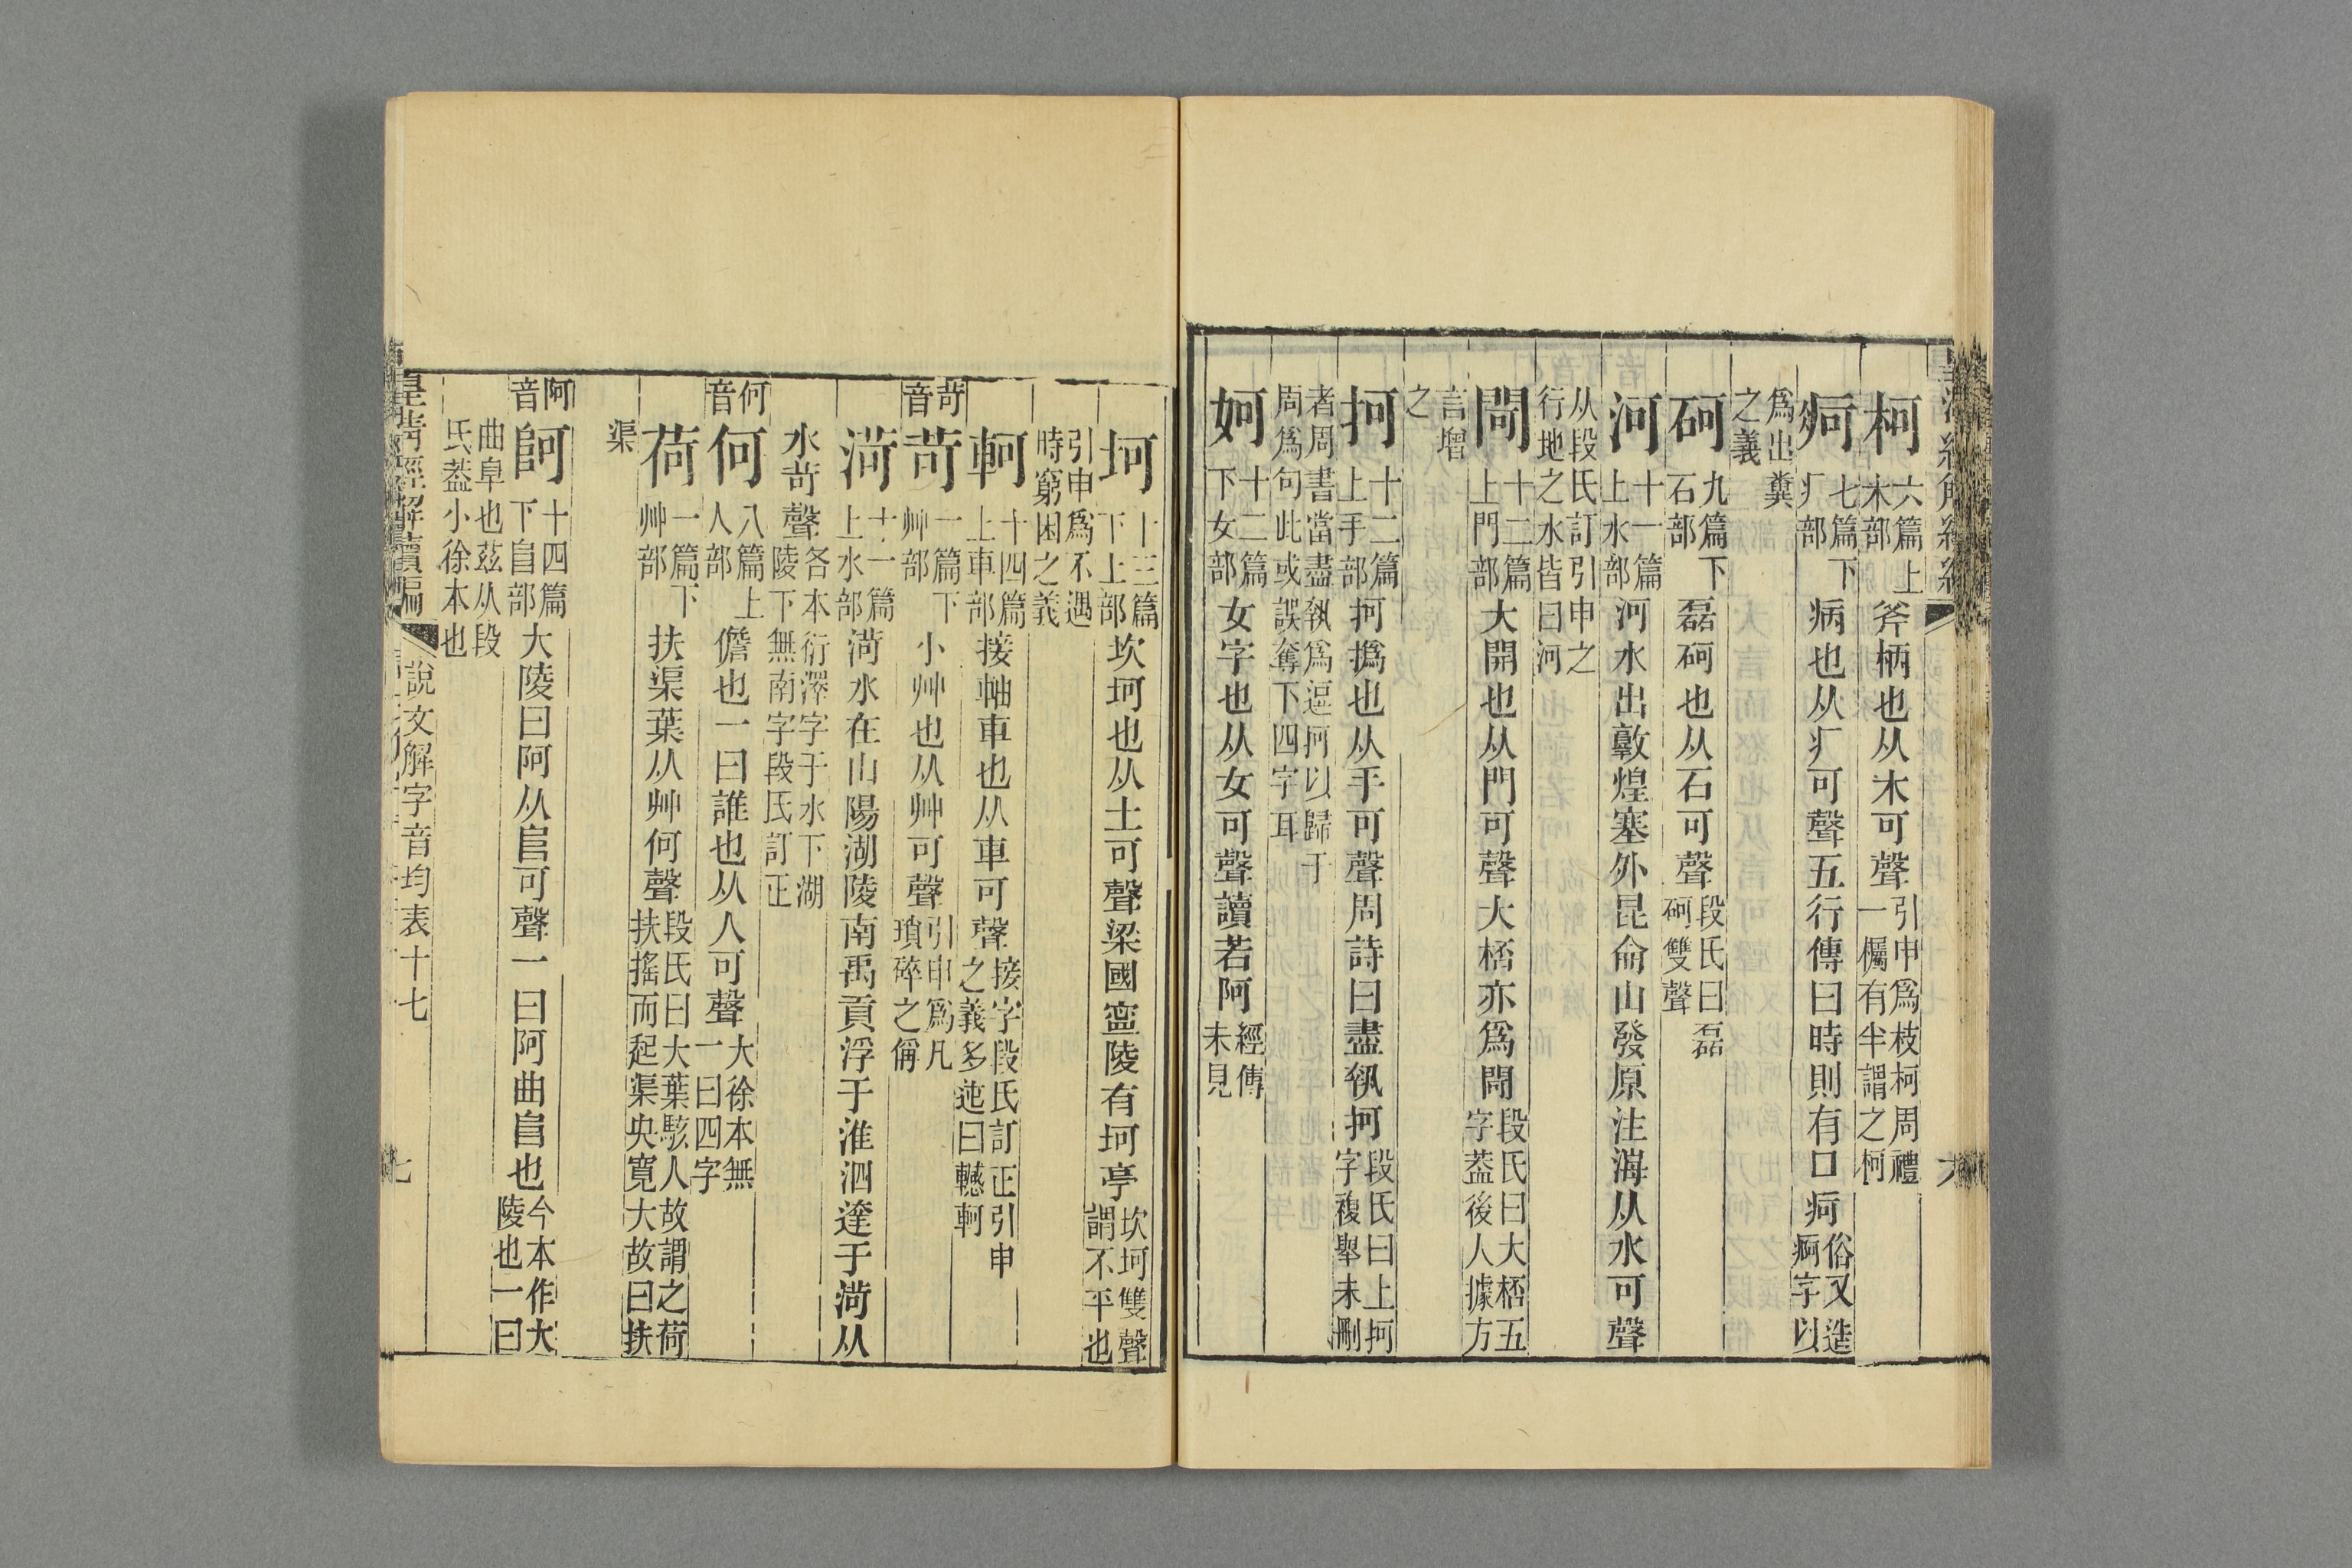 柯六篇上木部斧柄也从木可聲引申爲枝柯周禮一欘有半謂之柯
疴七篇下疒部病也从疒可聲五行傳曰時則有口疴俗又造痾字以
爲出糞之義
砢九篇下石部磊砢也从石可聲段氏曰磊砢雙聲
河十一篇上水部河水出敦煌塞外昆侖山發原注海从水可聲
从段氏訂引申之行地之水皆曰河
閜十二篇上門部大開也从門可聲大桮亦爲閜段氏曰大桮五字葢後人據方
言增之
抲十二篇上手部抲撝也从手可聲周詩曰盡執抲段氏曰上抲字複舉未刪
者周書當盡執爲逗抲以歸于周爲句此或誤奪下四字耳
妸十二篇下女部女字也从女可聲讀若阿經傳未見
坷十三篇下土部坎坷也从土可聲梁國寍陵有坷亭坎坷雙聲謂不平也
引申爲不遇時窮困之義
軻十四篇上車部接軸車也从車可聲接字段氏訂正引申之義多迆曰轗軻
苛音
苛一篇下艸部小艸也从艸可聲引申爲凡瑣碎之偁
菏十一篇上水部菏水在山陽湖陵南禹貢浮于淮泗達于菏从
水苛聲各本衍澤字于水下湖陵下無南字段氏訂正
何音
何八篇上人部儋也一曰誰也从人可聲大徐本無一曰四字
荷一篇下艸部扶渠葉从艸何聲段氏曰大葉駭人故謂之荷扶搖而起渠央寬大故曰扶
渠
阿音
阿十四篇下𨸏部大陵曰阿从𨸏可聲一曰阿曲𨸏也今本作大陵也一曰
曲阜也茲从段氏葢小徐本也
說文解字音均表十七
七